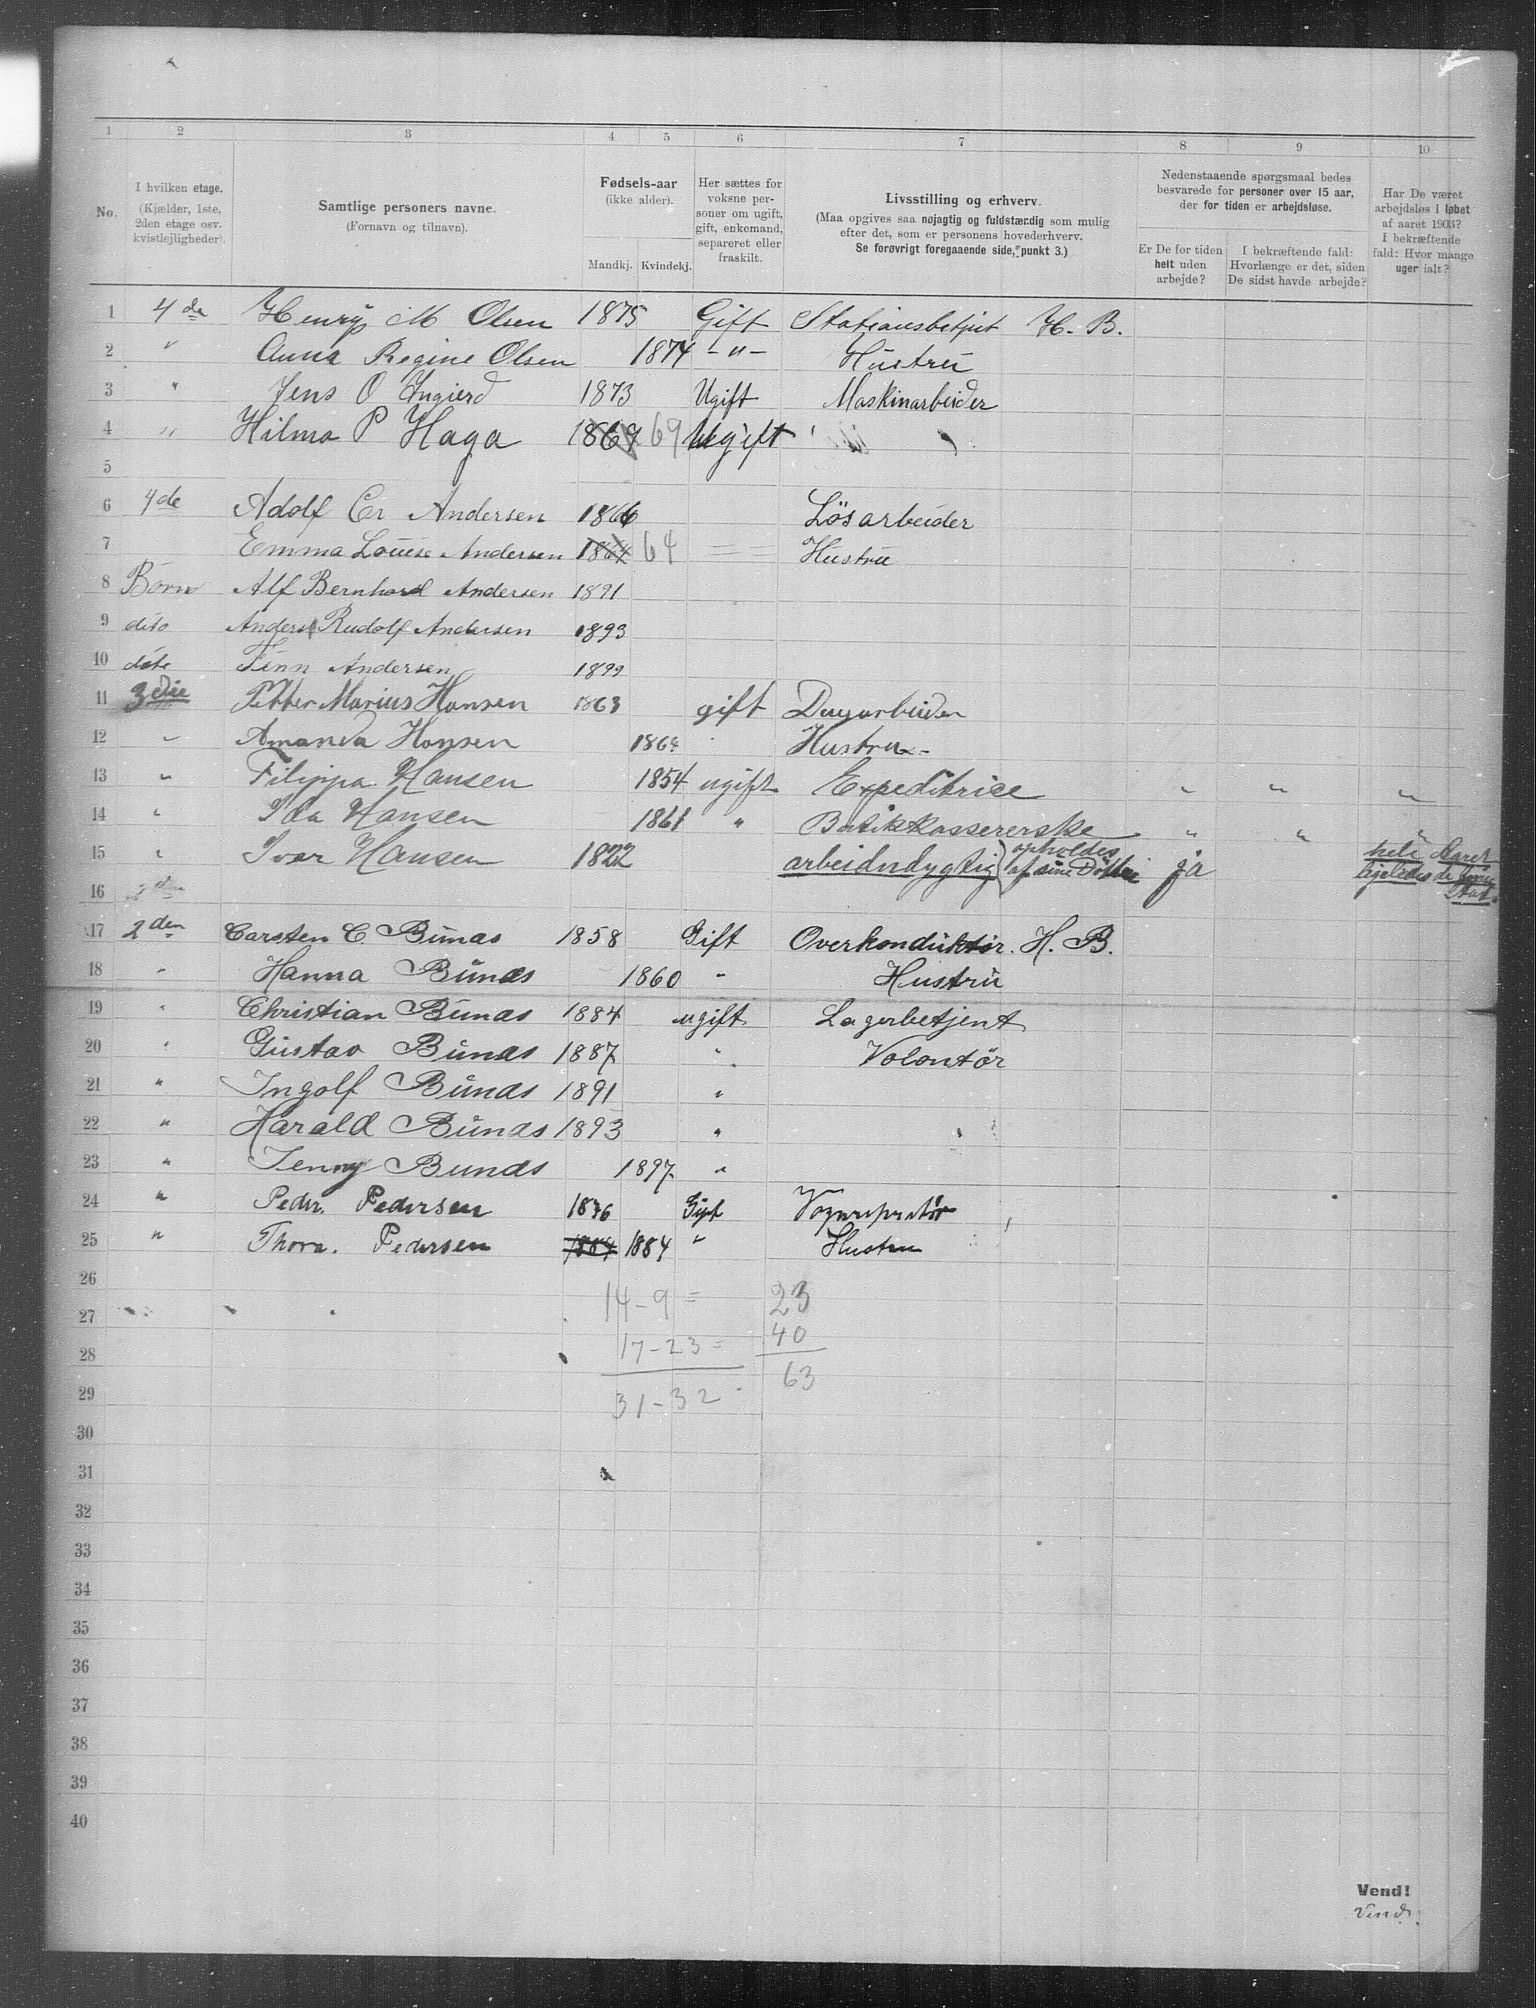 1 2 3 4 5 6 7 8 9 10
No.
I hvilken etage. (Kjælder, 1ste, 2den etage osv. kvistlejligheder).
Samtlige personers navne. (Fornavn og tilnavn).
Fødsels-aar (ikke alder).
Mandkj. Kvindekj.
Her sættes for voksne per-soner om ugift, gift, enkemand, separeret eller fraskilt.
Livsstilling og erhverv.
(Maa opgives saa nøjagtig og fuldstændig som mulig efter det, som er personens hovederhverv.
Se forøvrigt foregaaende side, punkt 3.)
Nedenstaaende spørgsmaal bedes besvarede for personer over 15 aar, der for tiden er arbejdsløse.
Er De for tiden helt uden arbejde?
I bekræftende fald: Hvorlænge er det, siden De sidst havde arbejde?
Har De været arbejdsløs i løbet af aaret 1903? I bekræftende fald: Hvor mange uger ialt?
1 4de Henrÿ M Olsen 1875 Gift Stationsbetjnt H. B.
2 " Anna Regine Olsen 1874 -"- Hustru
3 " Jens O Ingierd 1873 Ugift Maskinarbeider
4 " Hilma P Haga 1869 69 Ugift
5
6 4de Adolf Cr Andersen 1866 Lösarbeider
7 Emma Louise Andersen 1864 64 Hustru
8 Börn Alf Bernhard Andersen 1891
9 dito Anders Rudolf Andersen 1893
10 dito Finn Andersen 1899
11 3die Petter Marius Hansen 1863 gift Dagarbeider
12 " Amanda Hansen 1864 Hustru -
13 " Filippa Hansen 1854 ugift Expeditrice " " "
14 " Ida Hansen 1861 " Butikkassererske " " "
15 " Ivar Hansen 1822 arbeidudygtig opholdes af sine Döttre ja hele Aaret ligeledes de
16
17 2den Carsten C Bünæs 1858 Gift Overkonduktør. H. B.
18 " Hanna Bünæs 1860 " Hustru
19 " Christian Bünæs 1884 ugift Lagerbetjent
20 " Gustav Bünæs 1887 " Volontør
21 " Ingolf Bünæs 1891 "
22 " Harald Bünæs 1893 "
23 " Jenny Bunæs 1897 "
24 " Peder. Pedersen 1876 Gift Vognrepratör
25 " Thora. Pedersen 1884 1884 " Hustru
26 14-9 = 23
27 17-23 = 40
28 63
29 31-32
30
31
32
33
34
35
36
37
38
39
40
Vend!
Vend.